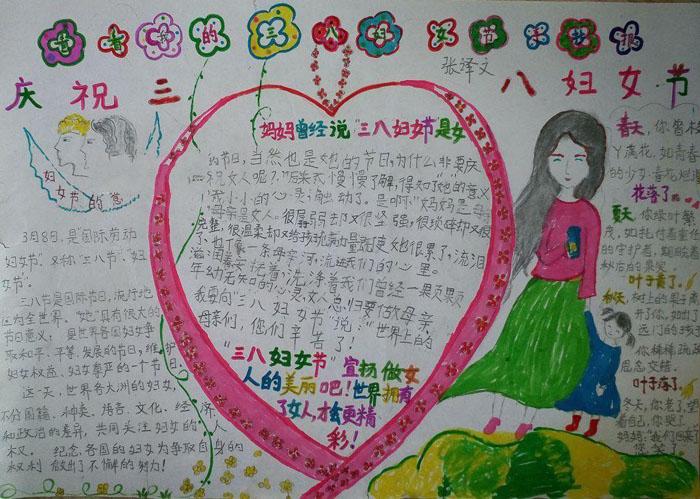 的三八妇女节手抄报
张泽文
庆祝三八妇女节
妇女节的意
3月8日,是国际劳动
妇女节",又称"三八节"、"妇
女节"。
三八节是国际节日,流行地
区为全世界。"她"具有很大的
节日意义: 是世界各国妇女争
取和平、平等、发展的节日,维护
妇女权益、妇女尊严的一个节日。
这一天,世界各大洲的妇女,
不分国籍、种类、语言、文化、经济
和政治的差异,共同关注妇女的人
权。纪念各国的妇女为争取自身的
权利做出了不懈的努力!
妈妈曾经说"三八妇女节"是女
的节日,当然也是她的节日,为什么非要庆
祝女人呢?"后来
慢慢了解,得知了"她"的意义
我小小的心灵触动了。是啊!"妈妈是母
母亲是女人。很孱弱却又很坚强,很琐碎却又很
完整,很温柔却又给孩子
她很累了,流泪
了,也了像一条母亲河,流进我们的心里。
滋润着
洗净着我们曾经一颗颗
年幼无知的心灵,女人总归要估做母亲,
我要向"三八妇女节"说:"世界上的
母亲们,您们辛苦了!
"三八妇女节"宣扬做女
人的美丽吧!世界拥有
了女人,才会更精
彩!
春天,你曾
丫
花,如青春
的少女,
花落了。
夏天,你绿叶
茂,如托付着
的守护者,期盼着
秋后的果实
叶子黄了。
秋天,树上的果子
开了你,如
了远门的
你稀稀疏疏
思念交错。
叶子落了。
冬天,你老了,
看着自己,你哭了。
妈妈,"我们回
您笑了。